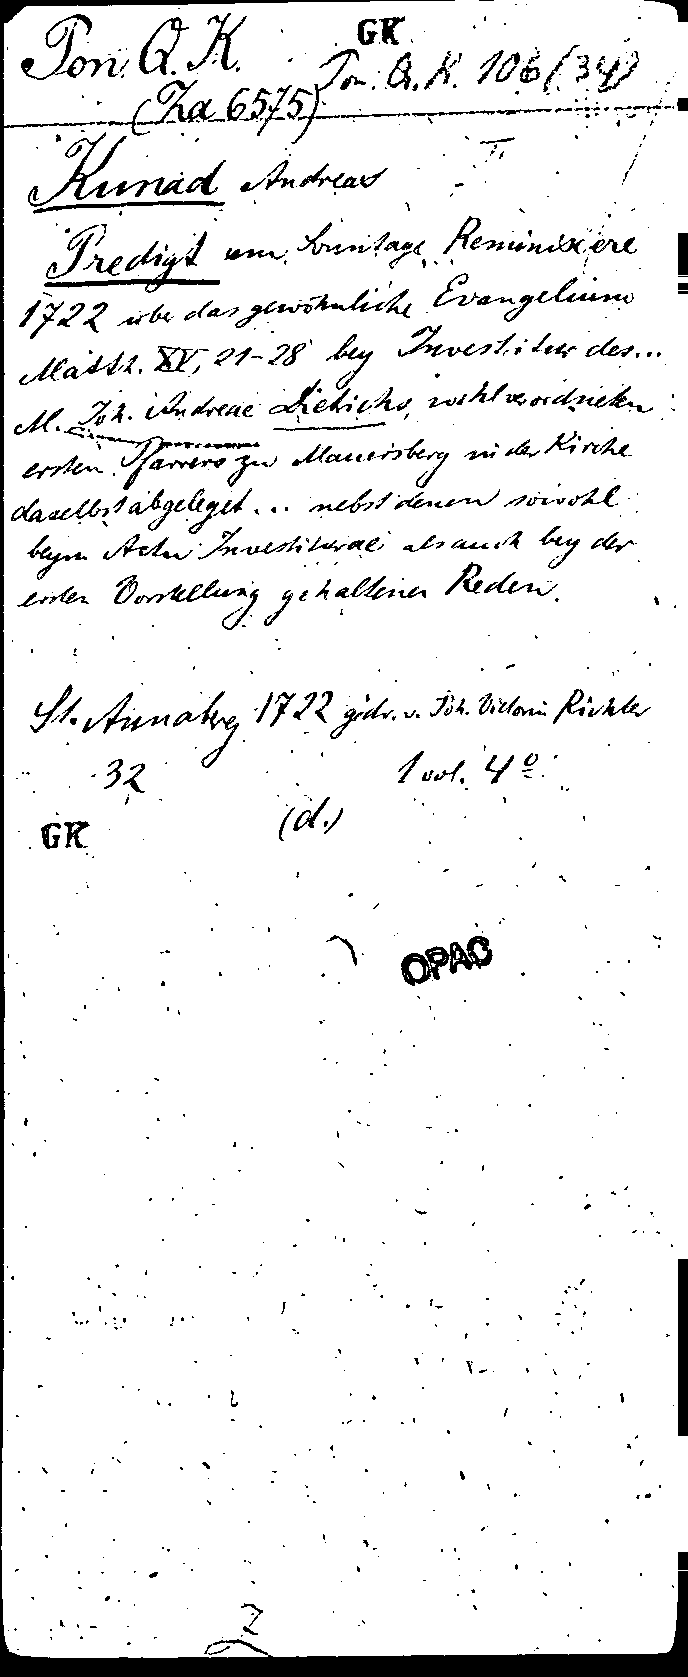 GK
Pon. Q. K.
Pon. Q. K. 106 (34)
(Za 6575)
II
Kunad Andreas
Predigt am Sonntage Reminiscere
1722 über das gewöhnliche Evangelium
Matth. XV, 21-28 bey Investitur des...
M. Joh. Andreae Dietrichs, wohlverordneten
ersten Pfarrers zu Mauersberg in der Kirche
daselbst abgeleget ... nebst denen sowohl
beym Actu Investiturae als auch bey der
ersten Vorstellung gehaltenen Reden.
St. Annaberg 1722 gedr. v. Joh. Victorin Richter
32 1 vol. 4º
(d.)
GK
OPAC